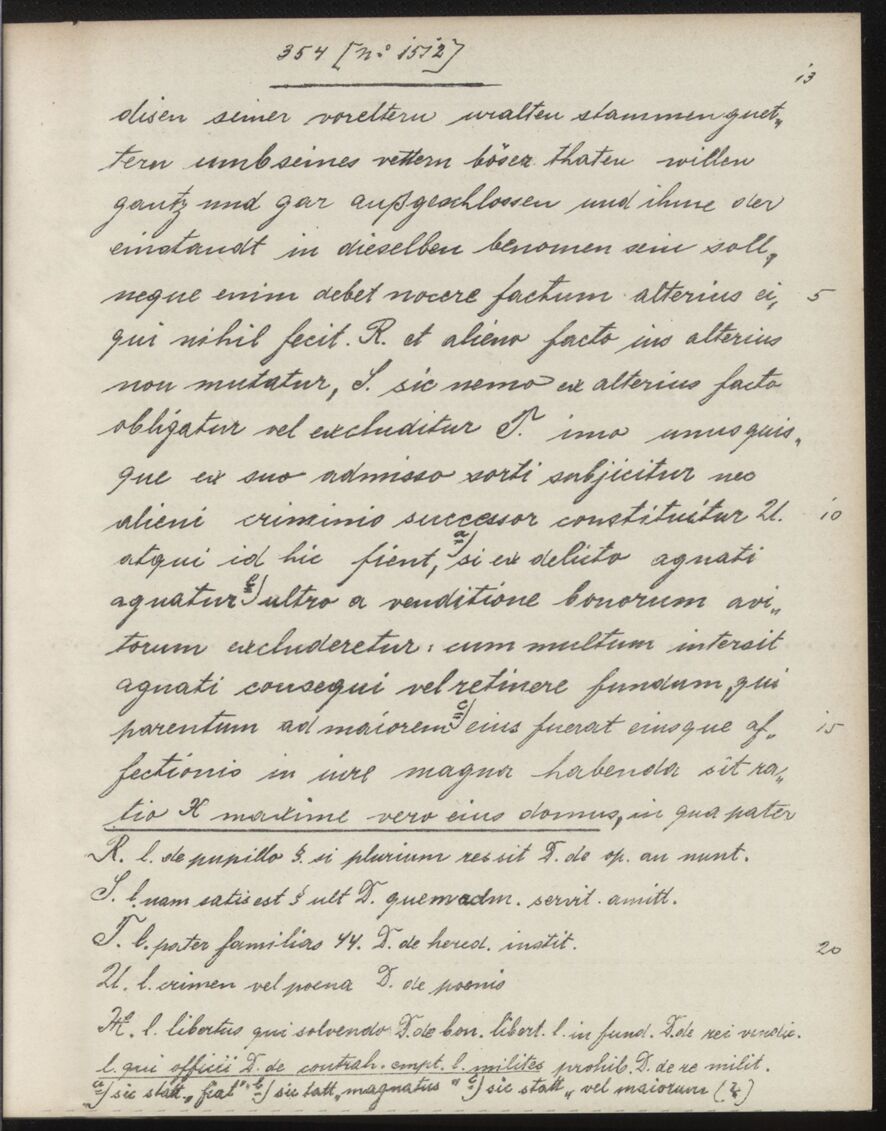 354 [n:o 1512]
13
disen seiner voreltern uralten stammenguet„
tern umb seines vettern böser thaten willen
gantz und gar außgeschlossen und ihme der
einstandt in dieselben benomen sein soll,
neque enim debet nocere factum alterius ei, 5
qui nihil fecit. R. et alieno facto ius alterius
non mutatur, S. sic nemo ex alterius facto
obligatur vel excluditur T. imo unusquis„
que ex suo admisso sorti subjicitur nec
alieni criminis successor constituitur U. 10
atqui id hic fient, a) si ex delicto agnati
agnatur b) ultro a venditione bonorum avi„
torum excluderetur: cum multum intersit
agnati consequi vel retinere fundum, qui
parentum ad maiorem c) eius fuerat eiusque af„ 15
fectionis in iure magna habenda sit ra„
tio X maxime vero eius domus, in qua pater
R. l. de pupillo §. si plurium res sit D. de op. an nunt.
S. l. nam satis est § ult D. quemadm. servit. amitt.
T. l. pater familias 44. D. de hered. instit. 20
U. l. crimen vel poena D. de poenis
X. l. libertus qui solvendo D. de bon. libert. l. in fund. D. de rei vindic.
l. qui officii D. de contrah. empt. l. milites prohib. D. de re milit.
a) sic statt „fiat" b) sic statt „magnatus" c) sic statt „vel maiorum (?)